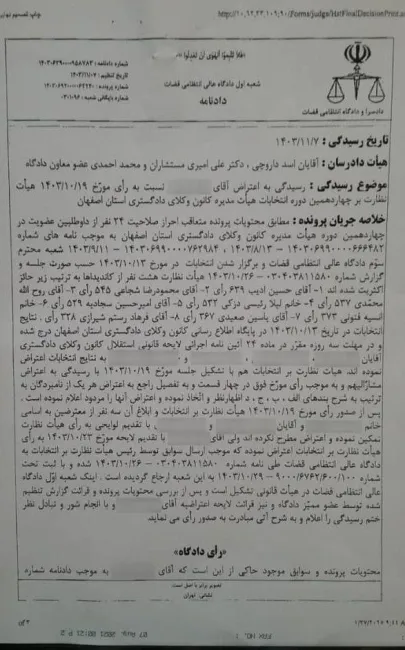 چاپ تصمیم نهایی
http://10.92.33.109:90/Forms/Judge/HtmlFinalDecisionPrint.as
«فلا تتبعوا الهوی ان تعدلوا»
شماره دادنامه :
تاریخ تنظیم : ۱۴۰۳/۱۱/۰۷
شماره پرونده :
شماره بایگانی شعبه :
شعبه اول دادگاه عالی انتظامی قضات
دادنامه
دادسرا و دادگاه انتظامی قضات
تاریخ رسیدگی : ۱۴۰۳/۱۱/۷
هیأت دادرسان : آقایان اسد داروچی ، دکتر علی امیری مستشاران و محمد احمدی عضو معاون دادگاه
موضوع رسیدگی : رسیدگی به اعتراض آقای نسبت به رأی مورّخ ۱۴۰۳/۱۰/۱۹ هیأت
نظارت بر چهاردهمین دوره انتخابات هیأت مدیره کانون وکلای دادگستری استان اصفهان
خلاصه جریان پرونده : مطابق محتویات پرونده متعاقب احراز صلاحیت ۲۴ نفر از داوطلبین عضویت در
چهاردهمین دوره هیأت مدیره کانون وکلای دادگستری استان اصفهان به موجب نامه های شماره
۱۴۰۳۰۶۹۹۰۰۰۰۶۶۶۴۸۲ – ۱۴۰۳/۸/۱۲ ، ۱۴۰۳۰۶۹۹۰۰۰۰۷۶۲۹۸۴ – ۱۴۰۳/۹/۱۱ شعبه محترم
سوّم دادگاه عالی انتظامی قضات و برگزار شدن انتخابات در مورّخ ۱۴۰۳/۱۰/۱۳ حسب صورت جلسه و
گزارش شماره ۰۳۰۴۰۳۸۱۱۵۸۰ – ۱۴۰۳/۱۰/۲۶ هیأت نظارت هشت نفر از کاندیداها به ترتیب زیر حائز
اکثریت شده اند ۱- آقای حسین ادیب ۶۳۹ رأی ۲- آقای محمدرضا شجاعی ۵۴۵ رأی ۳- آقای روح الله
محمّدی ۵۳۷ رأی ۴- خانم لیلا رئیسی دزکی ۵۳۲ رأی ۵- آقای امیرحسین سجادیه ۵۲۹ رأی ۶- خانم
انسیه فنونی ۳۷۳ رأی ۷- آقای یاسین سعیدی ۳۶۷ رأی ۸- آقای فرهاد رستم شیرازی ۳۲۸ رأی . نتایج
انتخابات در تاریخ ۱۴۰۳/۱۰/۱۳ در پایگاه اطلاع رسانی کانون وکلای دادگستری استان اصفهان درج شده
و در مهلت سه روزه مقرّر در ماده ۲۴ آئین نامه اجرائی لایحه قانونی استقلال کانون وکلای دادگستری
آقایان ، ، و ، و به نتایج انتخابات اعتراض
نموده اند. هیأت نظارت بر انتخابات هم با تشکیل جلسه مورّخ ۱۴۰۳/۱۰/۱۹ با رسیدگی به اعتراض
مشارٌالیهم و به موجب رأی مورّخ فوق در چهار قسمت و به تفصیل راجع به اعتراض هر یک از نامبردگان به
ترتیب به شرح بندهای الف ، ب ، ج ، د اظهارنظر و اتّخاذ نموده و اعتراض آنها را مردود اعلام نموده است .
پس از صدور رأی مورّخ ۱۴۰۳/۱۰/۱۹ هیأت نظارت بر انتخابات و ابلاغ آن سه نفر از معترضین به اسامی
خانم و آقایان و با تقدیم لوایحی به رأی هیأت نظارت
تمکین نموده و اعتراض مطرح نکرده اند ولی آقای با تقدیم لایحه مورّخ ۱۴۰۳/۱۰/۲۳ به رأی
هیأت نظارت بر انتخابات اعتراض نموده که موجب ارسال سوابق توسط رئیس هیأت نظارت بر انتخابات به
دادگاه عالی انتظامی قضات طی نامه شماره ۰۳۰۴۰۳۸۱۱۵۸۰ – ۱۴۰۳/۱۰/۲۶ شده و با ثبت تحت
شماره ۹۰۰۰/۶۷۶۲/۶۰۰/۱۰۰ – ۱۴۰۳/۱۰/۲۹ به این شعبه ارجاع گردیده است . اینک شعبه اوّل دادگاه
عالی انتظامی قضات در هیأت قانونی تشکیل است و پس از بررسی محتویات پرونده و قرائت گزارش تنظیم
شده توسط عضو ممیّز دادگاه و نیز قرائت لایحه اعتراضیه آقای و با انجام شور و تبادل نظر
ختم رسیدگی را اعلام و به شرح آتی مبادرت به صدور رأی می نماید
«رأی دادگاه»
محتویات پرونده و سوابق موجود حاکی از این است که آقای به موجب دادنامه شماره
تصویر برابر با اصل است
نشانی: تهران